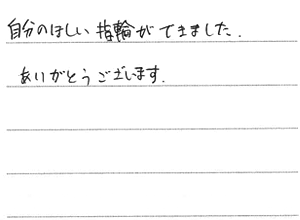 自分のほしい指輪ができました.
ありがとうございます.